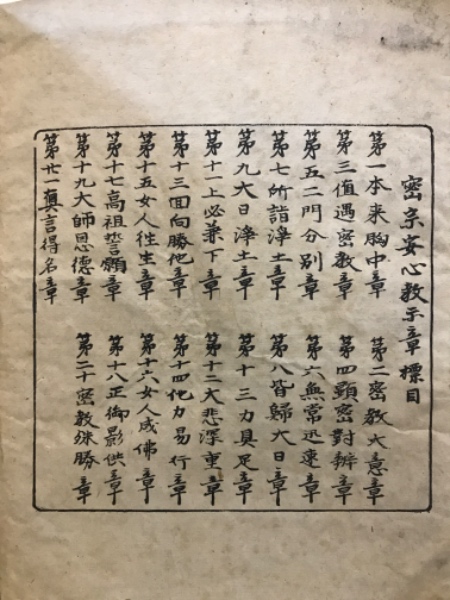 密宗安心教示章標目
第一本来胸中章 第二密教大意章
第三値遇密教章 第四顕密對辨章
第五二門分別章 第六無常迅速章
第七所詣浄土章 第八皆歸大日章
第九大日浄土章 第十三力具足章
第十一上必兼下章 第十二大悲深重章
第十三回向勝他章 第十四他力易行章
第十五女人往生章 第十六女人成佛章
第十七高祖誓願章 第十八正御影供章
第十九大師恩德章 第二十密教殊勝章
第廿一真言得名章